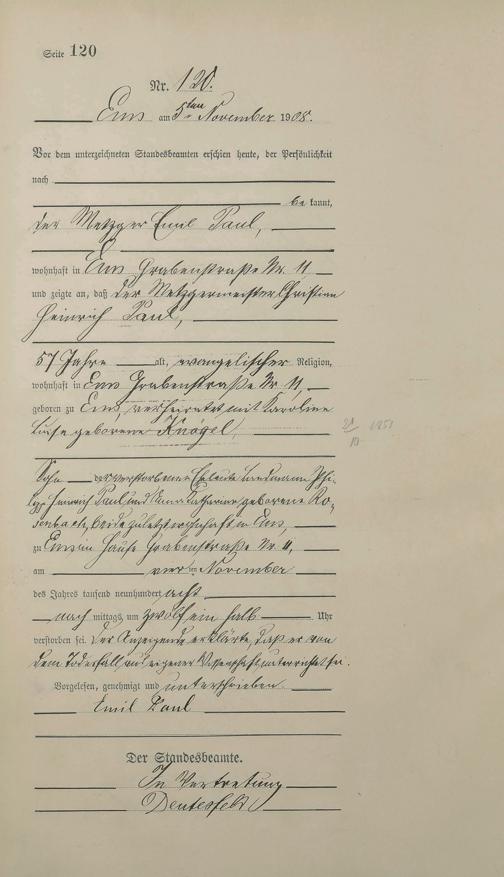 Seite 120
Nr. 120.
Ems am 5ten November 1908.
Vor dem unterzeichneten Standesbeamten erschien heute, der Persönlichkeit
nach
be kannt,
der Metzger Emil Paul,
wohnhaft in Ems Grabenstraße Nr. 11
und zeigte an, daß der Metzgermeister Christian
Heinrich Paul,
57 Jahre alt, evangelischer Religion,
wohnhaft in Ems Grabenstraße Nr. 11,
geboren zu Ems, verheiratet mit Karoline
Luise geborene
Sohn der verstorbenen Eheleute Landmann Phi-
lipp Heinrich Paul und Anna Katharine geborene Ro-
senbach, beide zuletzt wohnhaft in Ems,
zu Ems im Hause Grabenstraße Nr. 11,
am vierten November
des Jahres tausend neunhundert acht
nach mittags, um zwölf ein halb Uhr
verstorben sei. Der Anzeigende erklärte, daß er von
dem Todesfall aus eigener Wissenschaft unterrichtet sei.
Vorgelesen, genehmigt und unterschrieben.
Emil Paul
Der Standesbeamte.
In Vertretung